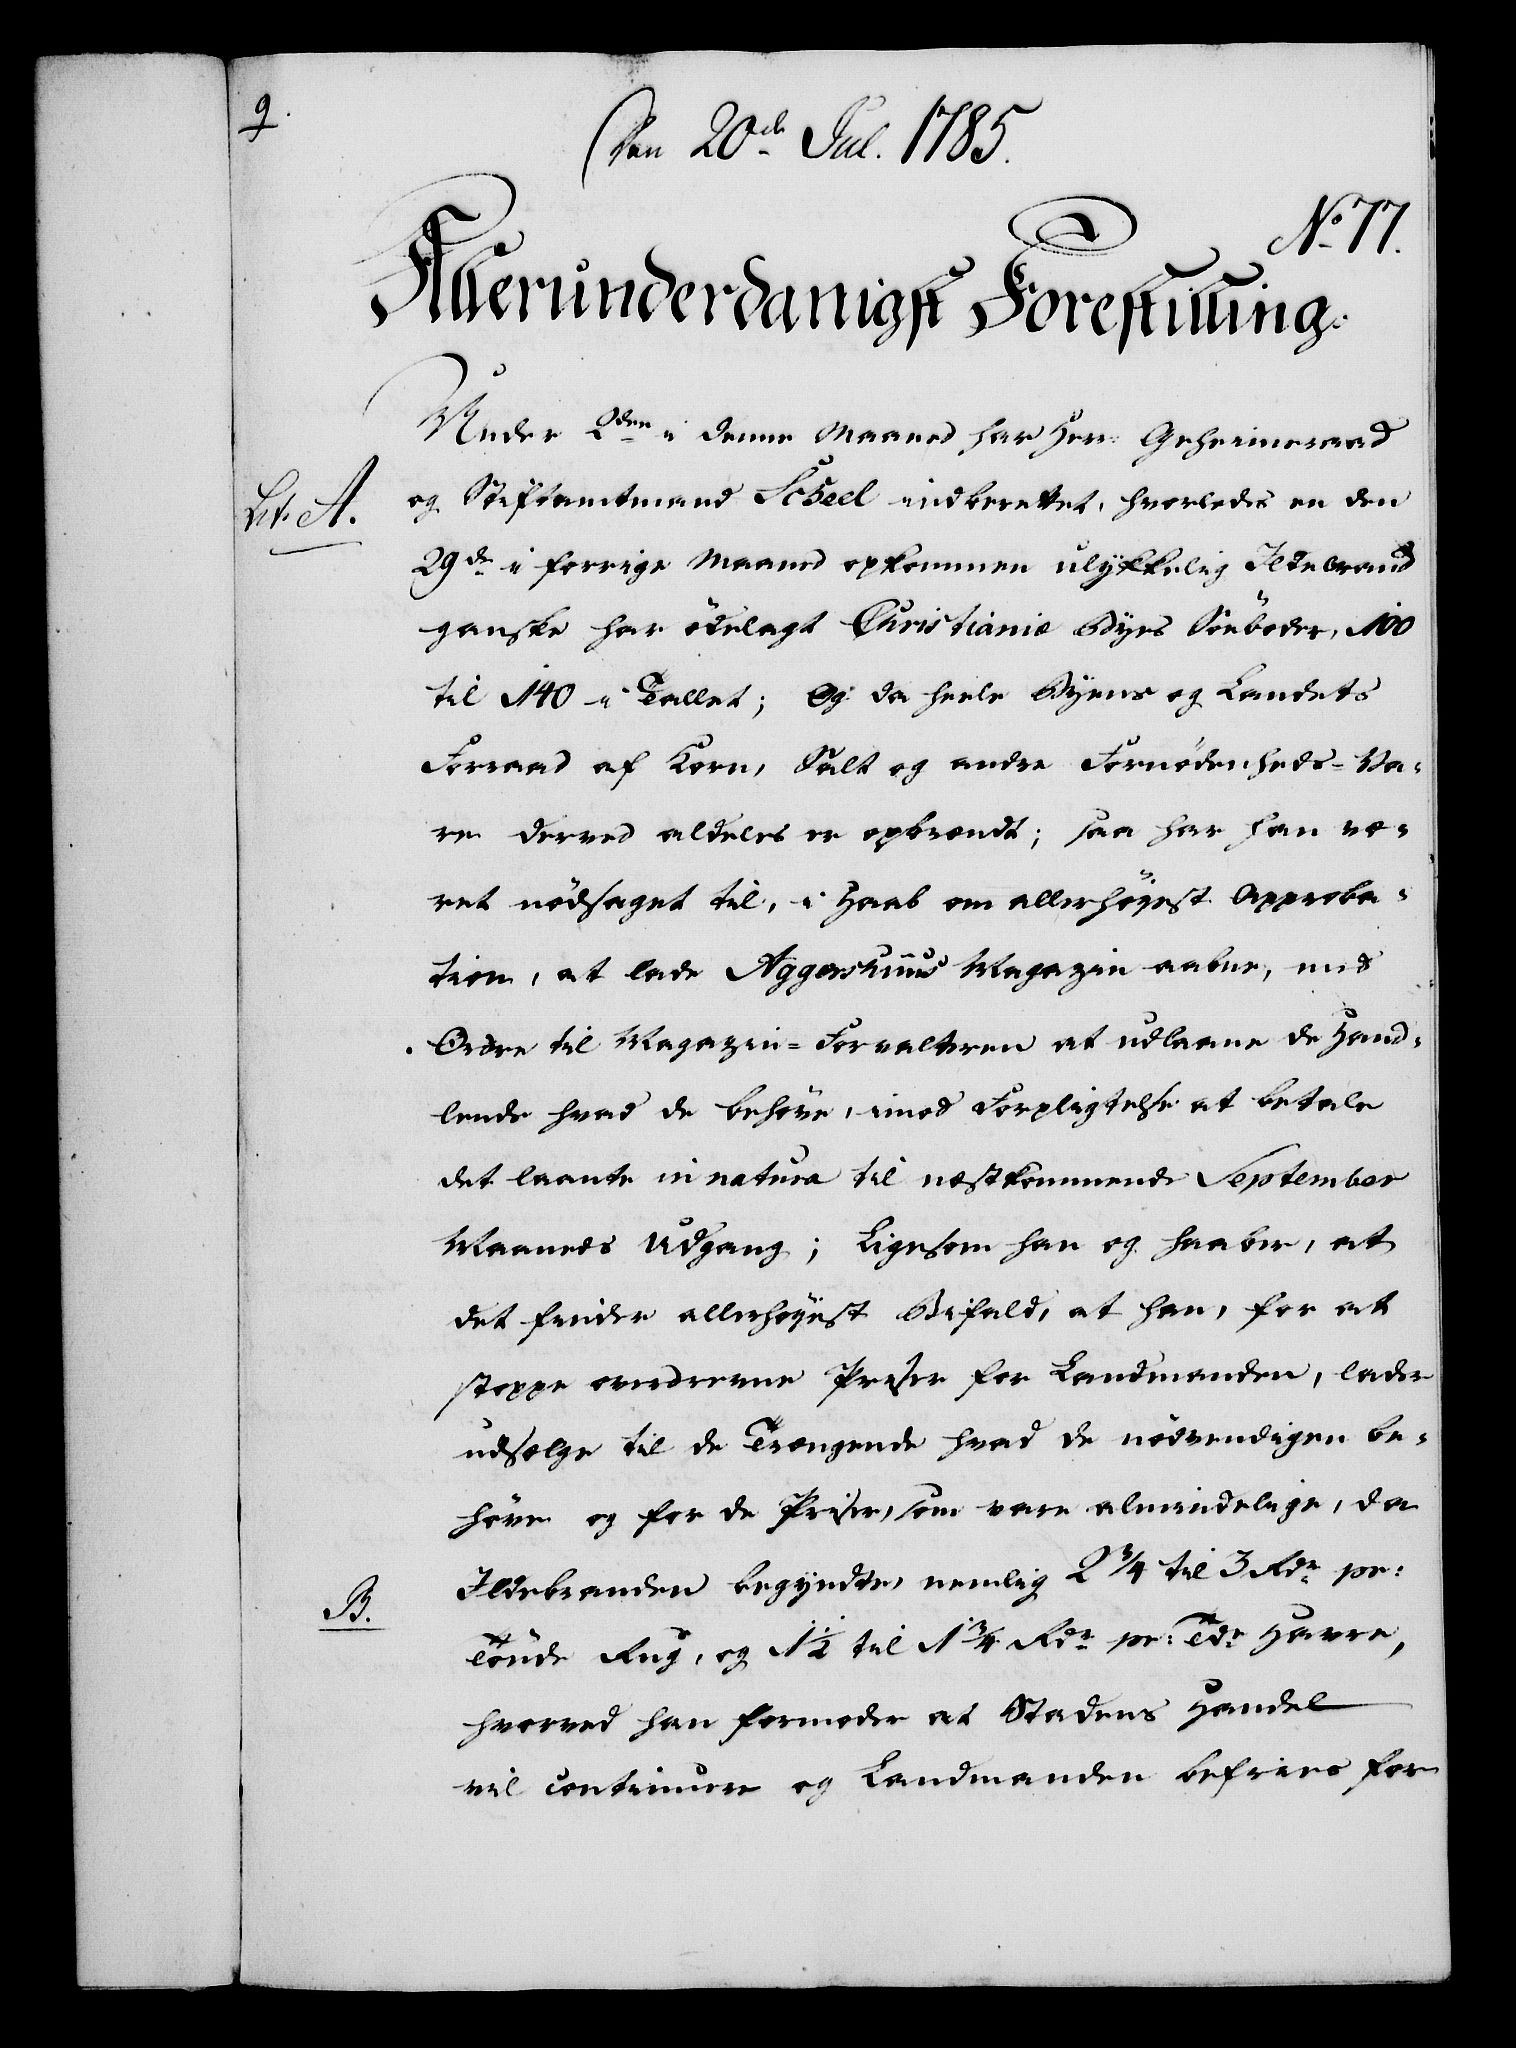 9.
Den 20de Jul. 1785.
No 77.
Allerunderdanigst Forestilling.
Under 2den i denne Maaned har Herr Geheimeraad
Lit. A.
og Stiftamtmand Scheel indberettet, hvorledes en den
29de i forrige Maaned opkommen ulykkelig Ildebrand
ganske har ödelagt Christianiæ Byes Söeboder, 100
til 140 i Tallet; Og da heele Byens og Landets
Forraad af Korn, Salt og andre Fornödenheds-Va-
re derved aldeles er opbrændt; saa har han væ-
ret nödsaget til, i Haab om allerhöyest Approba-
tion, at lade Aggershuus Magazin aabne, med
Ordre til Magazin-Forvalteren at udlaane de Hand-
lende hvad de behöve, imod Forpligtelse at betale
det laante in natura til næstkommende September
Maaneds Udgang; Ligesom han og haaber, at
det finder allerhöyest Bifald, at han, for at
stoppe overdrevne Priser for Landmanden, lader
udsælge til de Trængende hvad de nödvendigen be-
höve og for de Priser, som vare almindelige, da
B.
Ildebranden begyndte, nemlig 2 3/4 til 3 Rdr pr:
Tönde Rug, og 1 1/2 til 1 3/4 Rdr pr: Tde Havre,
hvorved han formoder at Stadens Handel
vil continuere og Landmanden befries for